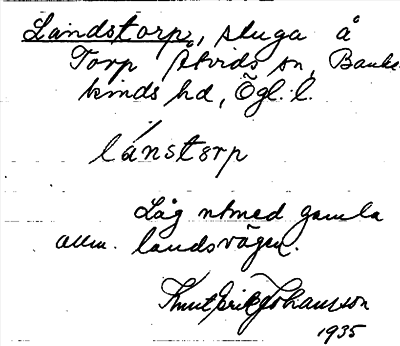 Landstorp, stuga å
Torp Åtvids sn, Banke-
kinds hd, Ögl. l.
lánstorp
Låg utmed gamla
allm. landsvägen.
Knut Erik Johansson
1935